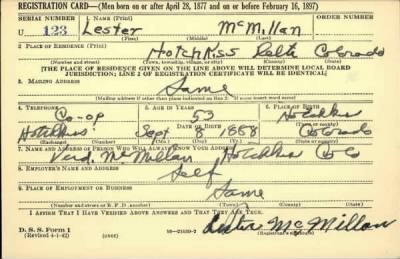 REGISTRATION CARD—(Men born on or after April 28, 1877 and on or before February 16, 1897)
SERIAL NUMBER 1. NAME (Print) ORDER NUMBER
U 123 Lester McMillan
(First) (Middle) (Last)
2. PLACE OF RESIDENCE (Print)
Hotchkiss Delta Colorado
(Number and street) (Town, township, village, or city) (County) (State)
[THE PLACE OF RESIDENCE GIVEN ON THE LINE ABOVE WILL DETERMINE LOCAL BOARD
JURISDICTION; LINE 2 OF REGISTRATION CERTIFICATE WILL BE IDENTICAL]
3. MAILING ADDRESS
Same
[Mailing address if other than place indicated on line 2. If same insert word same]
4. TELEPHONE 5. AGE IN YEARS 6. PLACE OF BIRTH
Co-op 53 Hotchkiss
DATE OF BIRTH (Town or county)
Hotchkiss Sept 8 1888 Colorado
(Exchange) (Number) (Mo.) (Day) (Yr.) (State or country)
7. NAME AND ADDRESS OF PERSON WHO WILL ALWAYS KNOW YOUR ADDRESS
McMillan Hotchkiss Colo
8. EMPLOYER'S NAME AND ADDRESS
Self
9. PLACE OF EMPLOYMENT OR BUSINESS
Same
(Number and street or R. F. D. number) (Town) (County) (State)
I AFFIRM THAT I HAVE VERIFIED ABOVE ANSWERS AND THAT THEY ARE TRUE.
D. S. S. Form 1 Lester McMillan
(Revised 4-1-42) (over) (Registrant's signature)